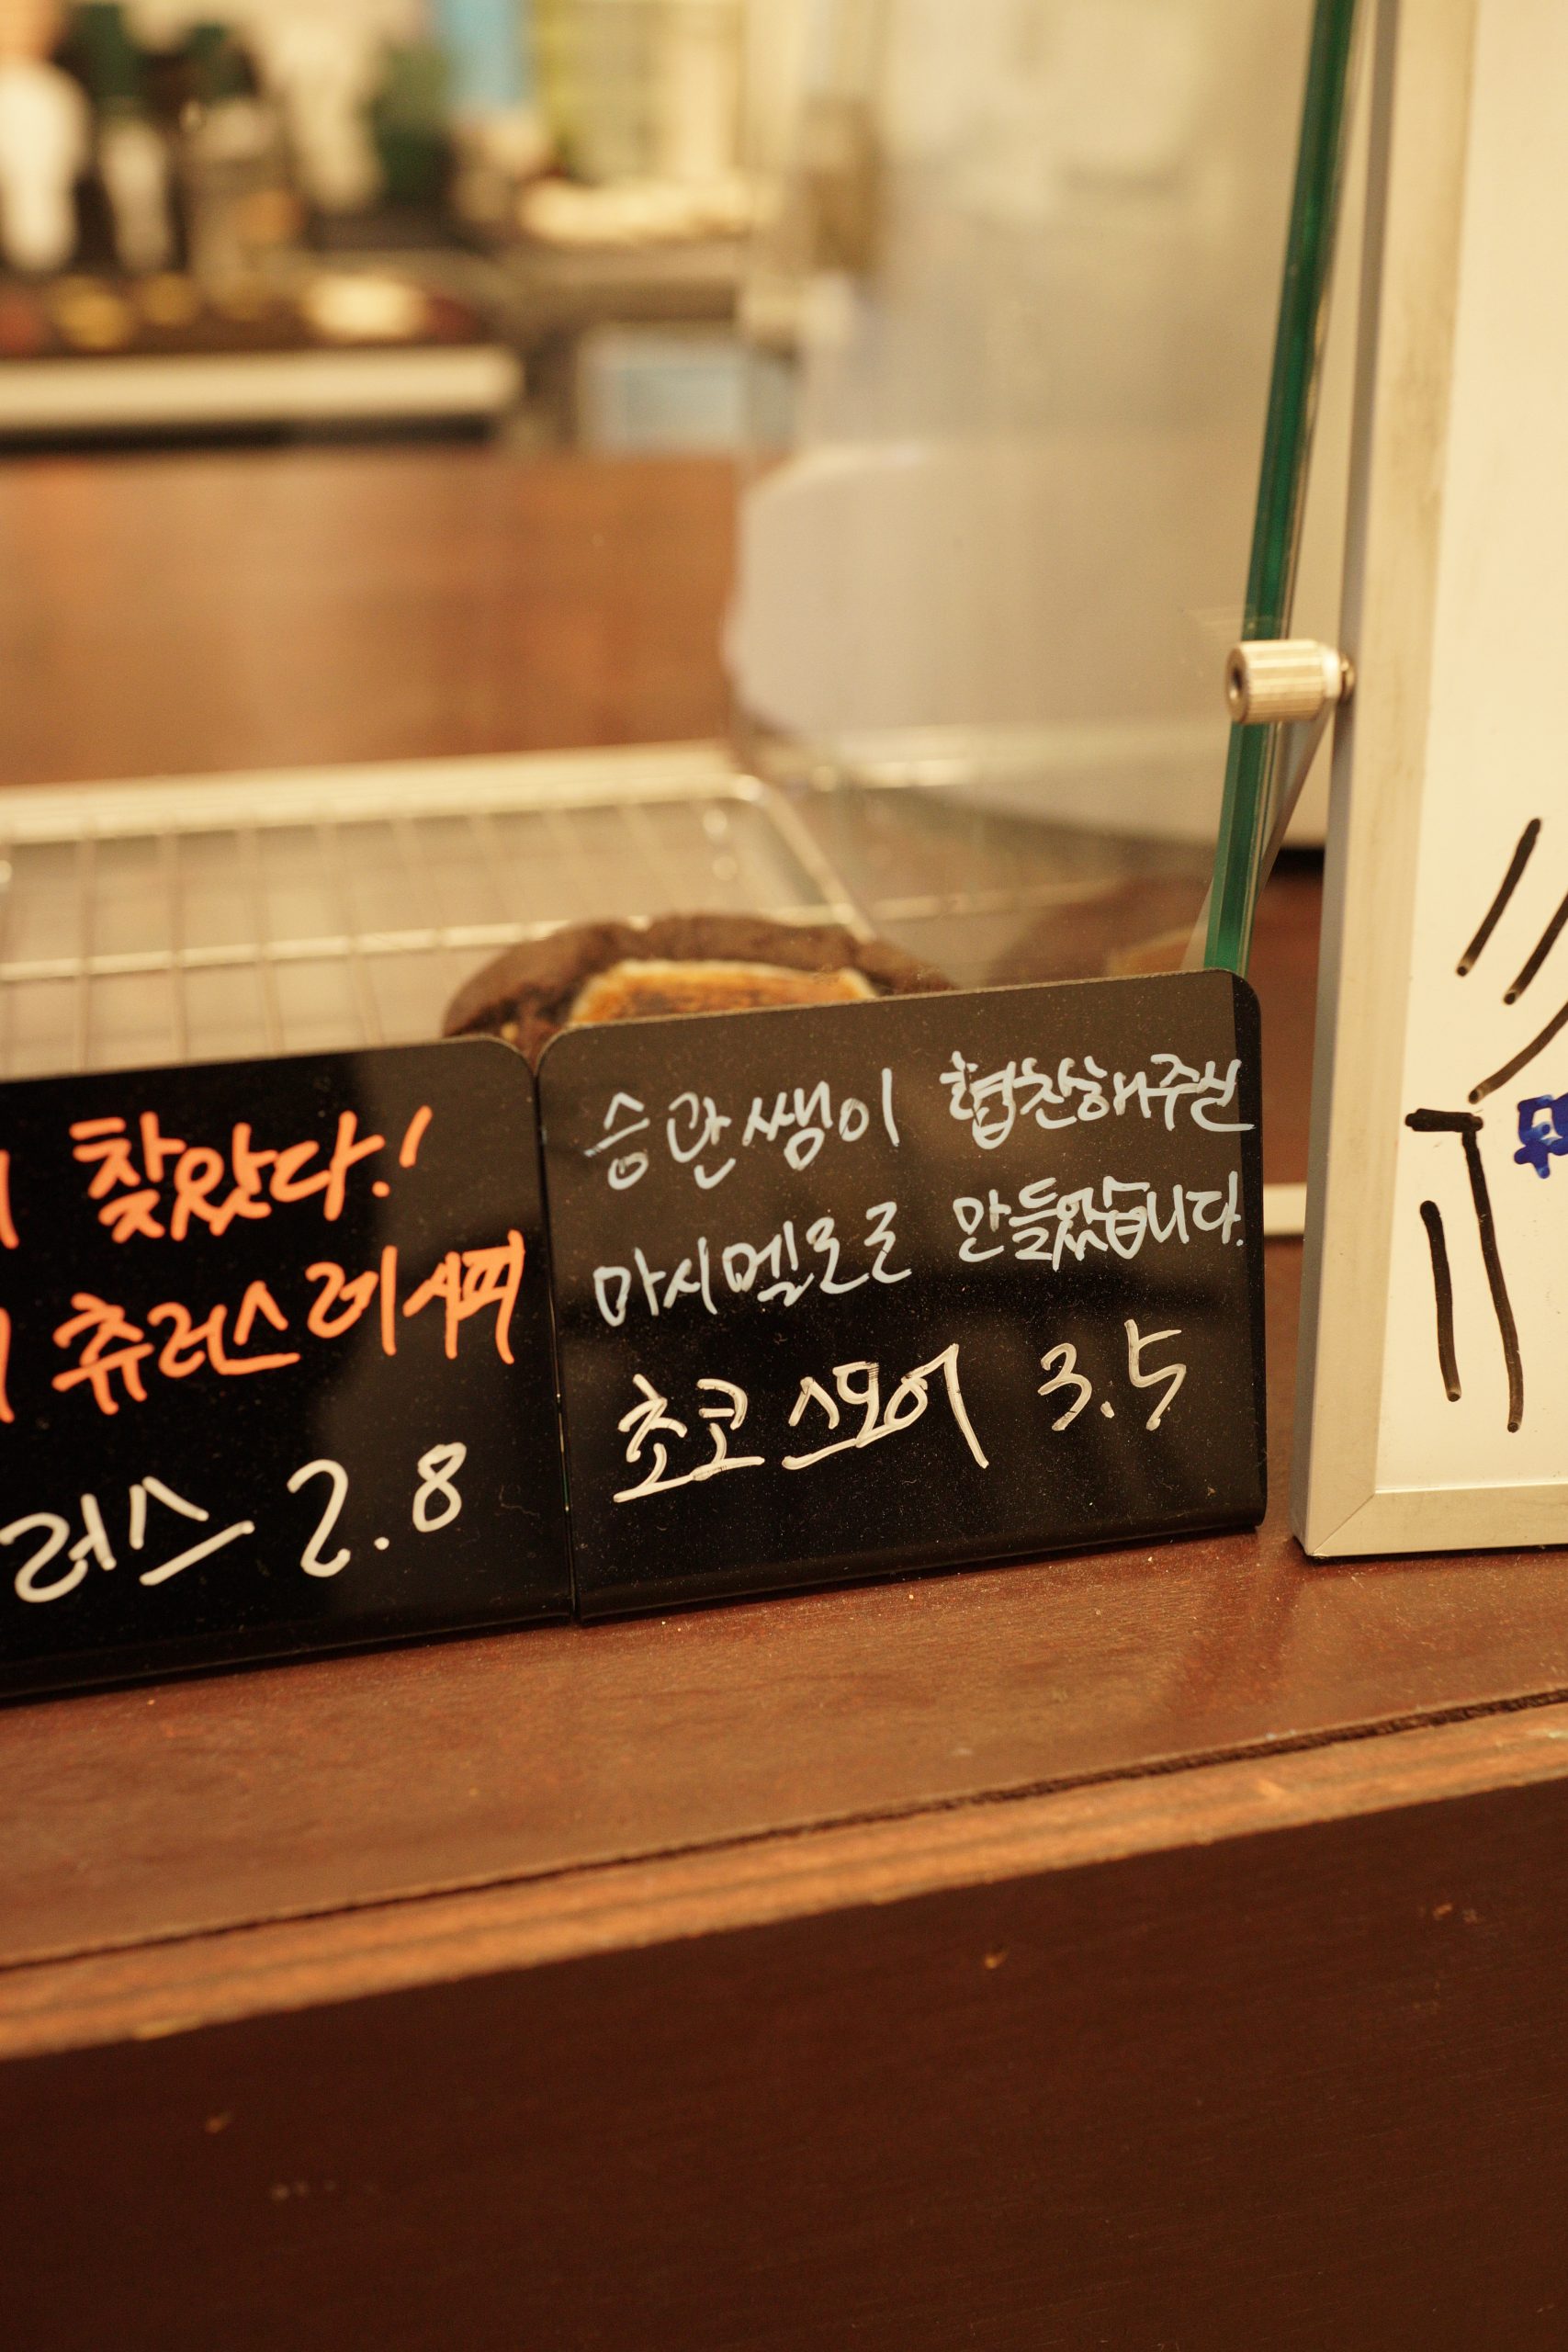 찾았다!
츄러스레시피
러스 2.8
승관쌤이 협찬해주신
마시멜로로 만들었습니다.
초코스모어 3.5